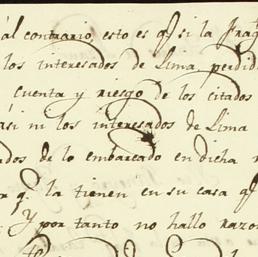 al contrario, esto es qe si la Frag
los interesados de Lima perdid
cuenta y riesgo de los citados
asi ni los interesados de Lima
ados de lo embarcado en dicha
qe la tienen en su casa qe
Y por tanto no hallo razo